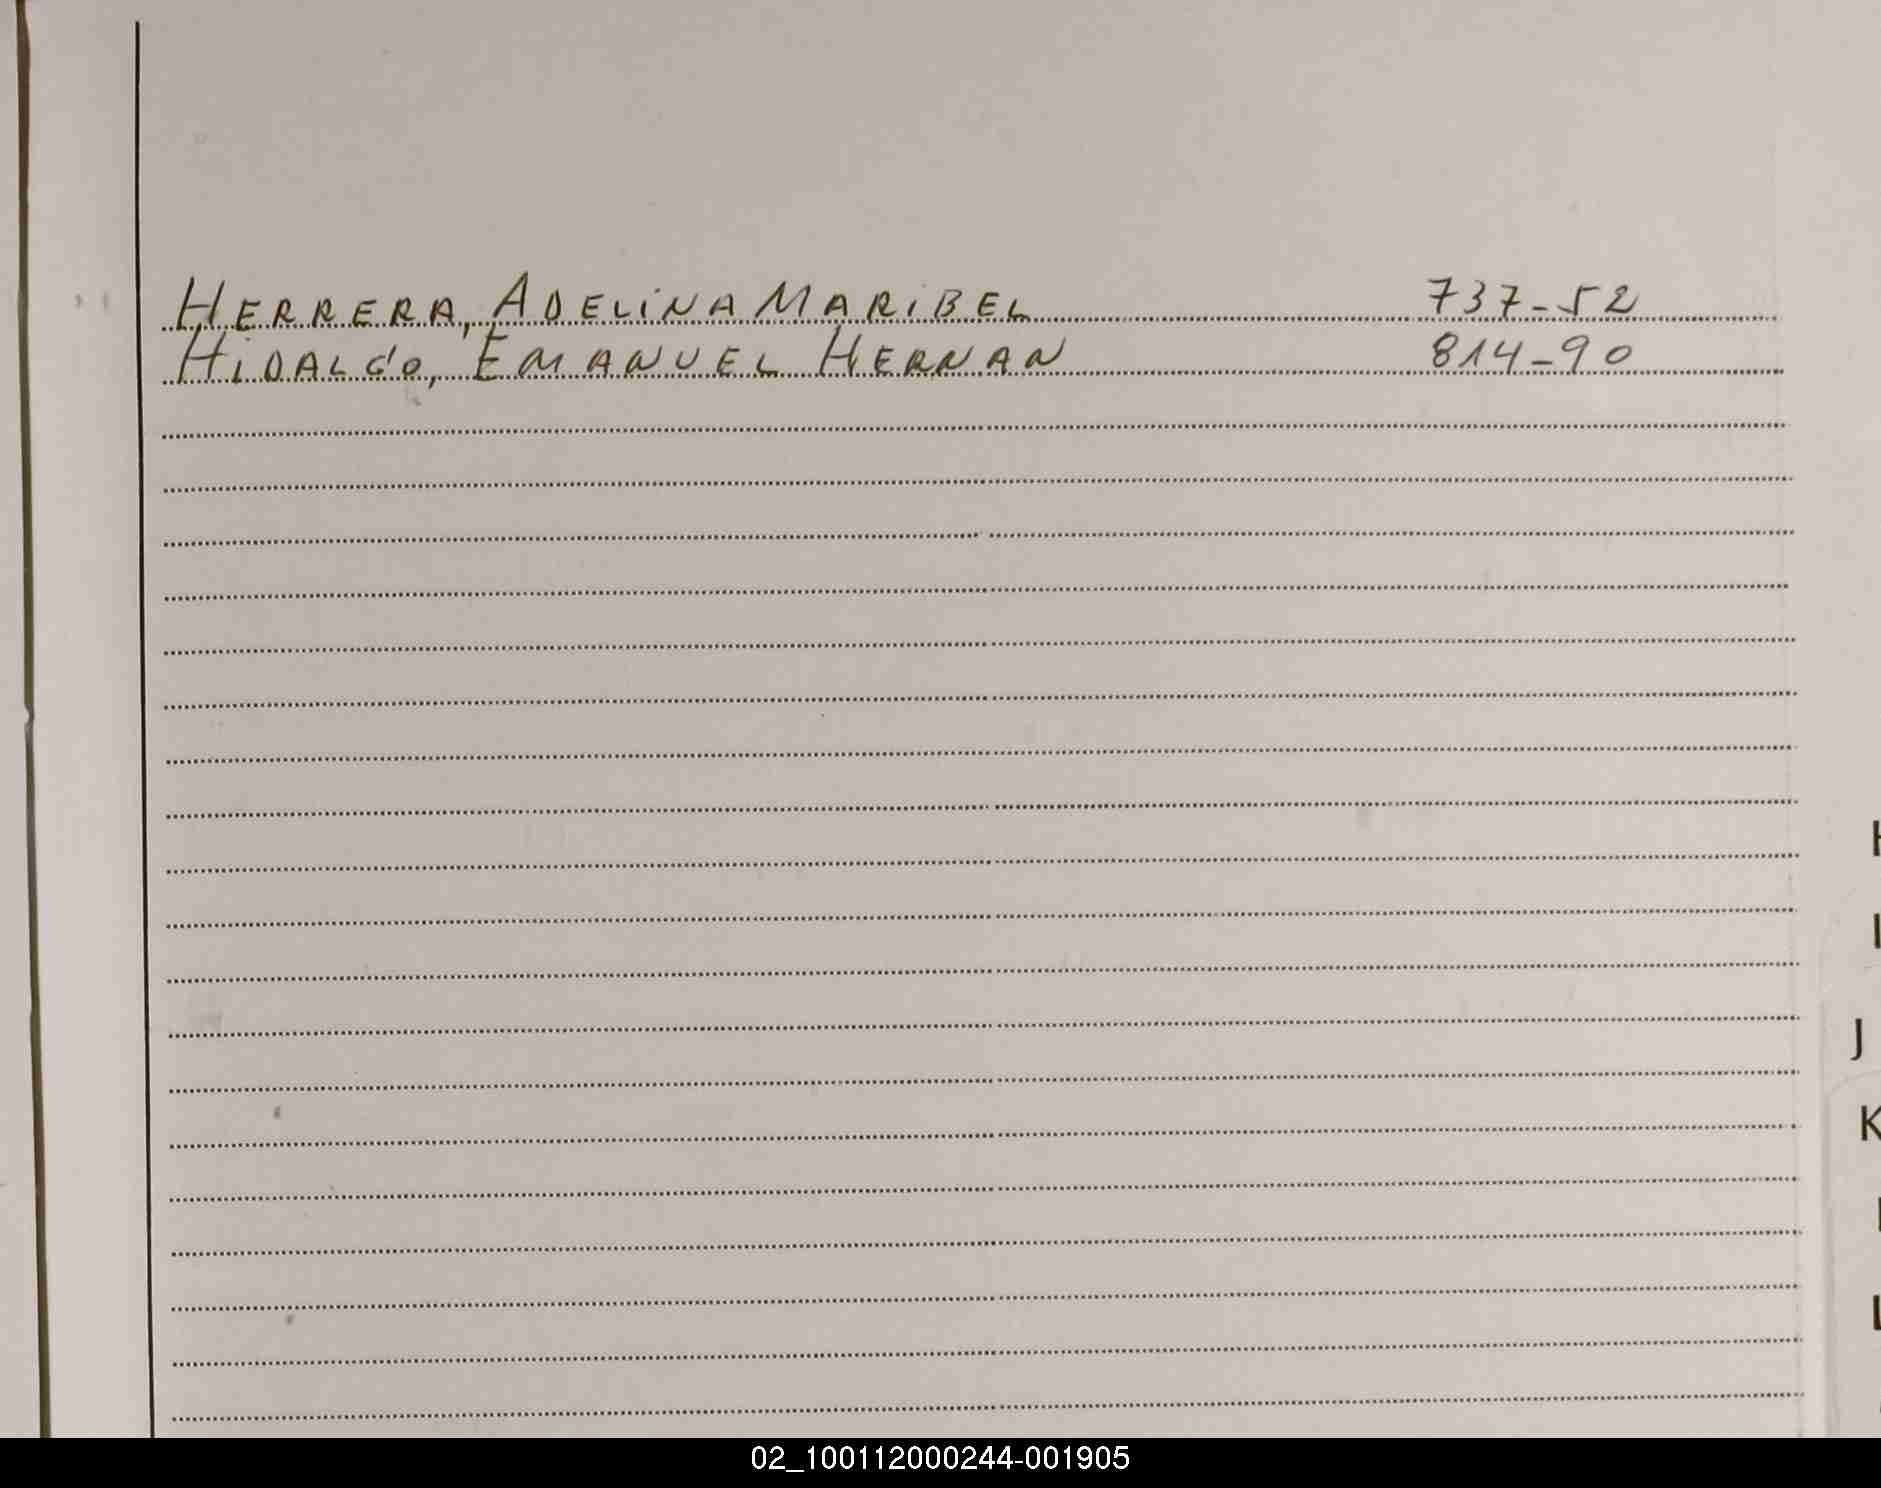 HERRERA, ADELINA MARIBEL 737-52
HIDALGO, EMANUEL HERNAN 814-90
J
K
02_100112000244-001905